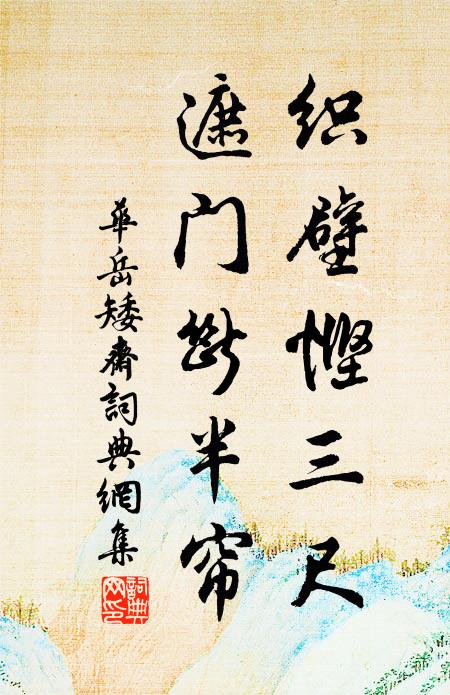 织壁慳三尺
遮门断半帘
華岳矮齋詞典網集
詞典
网印